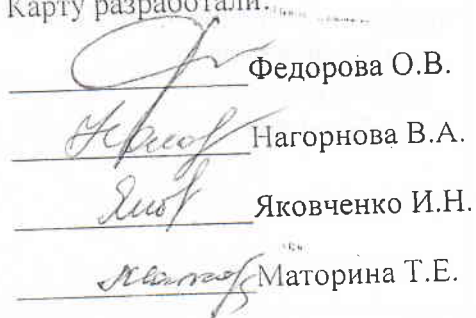 Карту разработали:
Федорова О.В.
Нагорнова В.А.
Яковченко И.Н.
Маторина Т.Е.